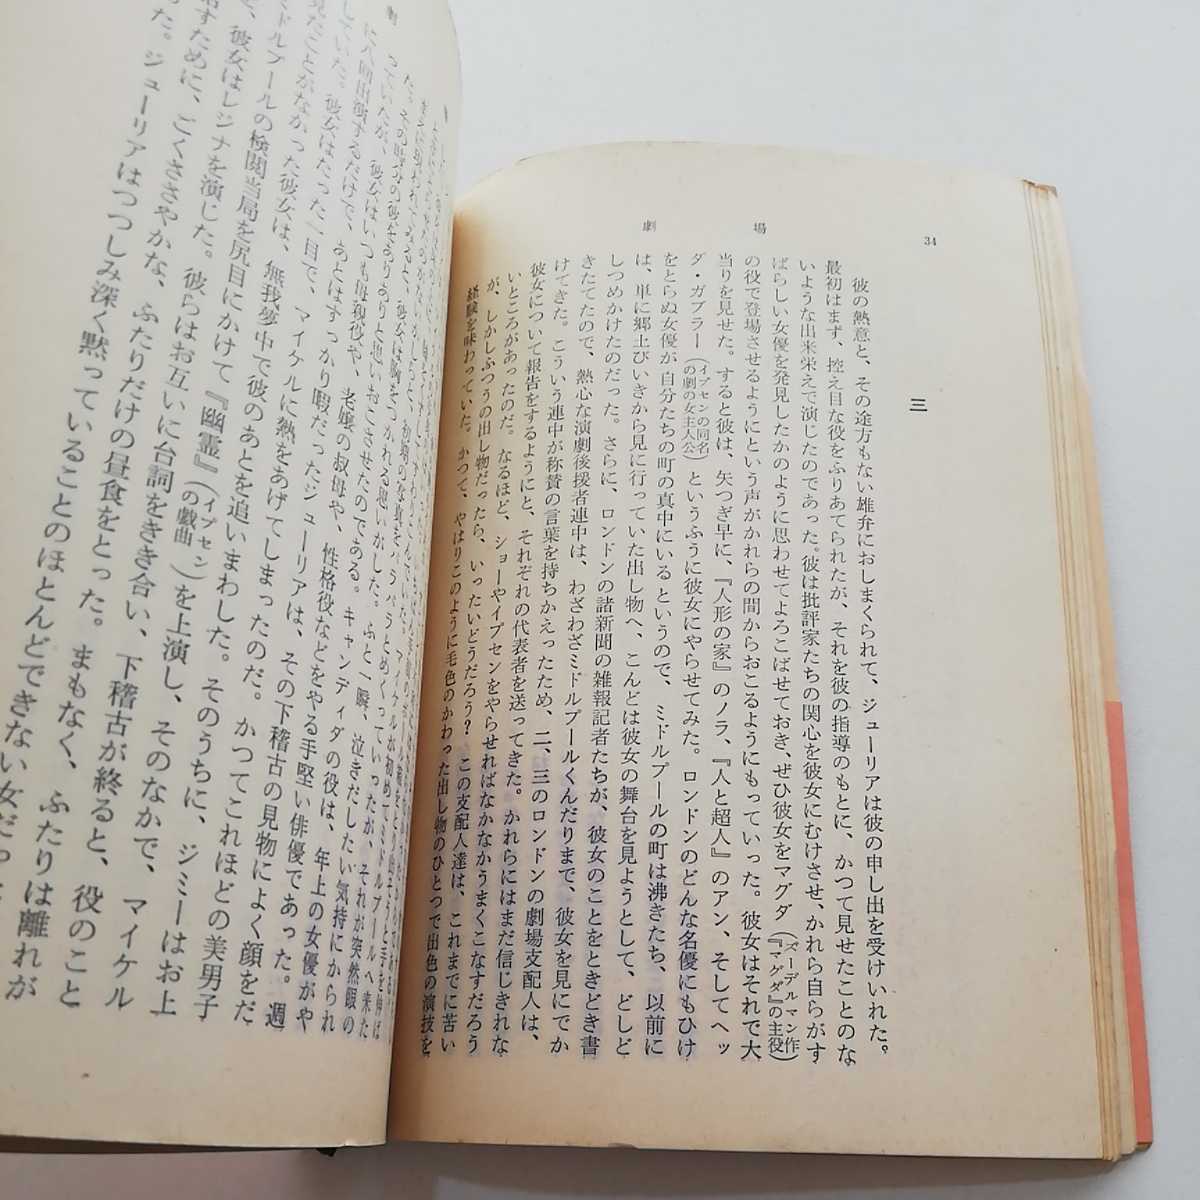 34
劇場
三
彼の熱意と、その途方もない雄弁におしまくられて、ジューリアは彼の申し出を受けいれた。
最初はまず、控え目な役をふりあてられたが、それを彼の指導のもとに、かつて見せたことのな
いような出来栄えで演じたのであった。彼は批評家たちの関心を彼女にむけさせ、かれら自らがす
ばらしい女優を発見したかのように思わせてよろこばせておき、ぜひ彼女をマグダ（ズーデルマン作『マグダ』の主役）
の役で登場させるようにという声がかれらの間からおこるようにもっていった。彼女はそれで大
当りを見せた。すると彼は、矢つぎ早に、『人形の家』のノラ、『人と超人』のアン、そしてヘッ
ダ・ガブラー（イプセンの同名の劇の女主人公）というふうに彼女にやらせてみた。ロンドンのどんな名優にもひけ
をとらぬ女優が自分たちの町の真中にいるというので、ミドルプールの町は沸きたち、以前に
は、単に郷土びいきから見に行っていた出し物へ、こんどは彼女の舞台を見ようとして、どしど
しつめかけたのだった。さらに、ロンドンの諸新聞の雑報記者たちが、彼女のことをときどき書
きたてたので、熱心な演劇後援者連中は、わざわざミドルプールくんだりまで、彼女を見にでか
けてきた。こういう連中が称賛の言葉を持ちかえったため、二、三のロンドンの劇場支配人は、
彼女について報告をするようにと、それぞれの代表者を送ってきた。かれらにはまだ信じきれな
いところがあったのだ。なるほど、ショーやイプセンをやらせればなかなかうまくこなすだろう
が、しかしふつうの出し物だったら、いったいどうだろう？この支配人達は、これまでに苦い
経験を味わっていた。かつて、やはりこのように毛色のかわった出し物のひとつで出色の演技を
劇
っていたが、彼女はいつも母親役や、老嬢の叔母や、性格役などをやる手堅い俳優であった。週
に八回出演するだけで、あとはすっかり暇だったジューリアは、その下稽古の見物によく顔をだ
していた。彼女はたった一目で、マイケルに熱をあげてしまったのだ。かつてこれほどの美男子
見たことがなかった彼女は、無我夢中で彼のあとを追いまわした。そのうちに、ジミーはお上
ミドルプールの検閲当局を尻目にかけて『幽霊』（イプセンの戯曲）を上演し、そのなかで、マイケル
彼女はレジナを演じた。彼らはお互いに台詞をきき合い、下稽古が終ると、役のこと
すために、ごくささやかな、ふたりだけの昼食をとった。まもなく、ふたりは離れが
た。ジューリアはつつしみ深く黙っていることのほとんどできない女だっ